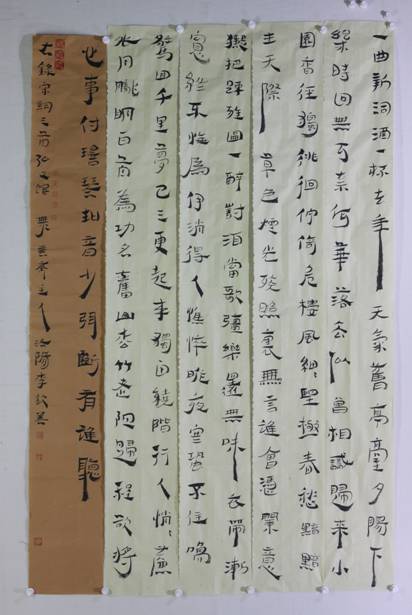 一曲新詞酒一杯去年天氣舊亭臺夕陽下
幾時回無可奈何華落去似曾相識歸來小
園香徑獨徘徊佇倚危樓風細〻望極春愁黯黯
生天際草色煙光殘照裏無言誰會憑闌意
擬把疏狂圖一醉對酒當歌強樂還無味衣帶漸
寬終不悔為伊消得人憔悴昨夜寒蛩不住鳴
驚回千里夢已三更起來獨自繞階行人悄〻簾
外月朧明白首為功名舊山松竹老阻歸程欲將
心事付瑤琴知音少弦斷有誰聽
右錄宋詞三首主人汝陽李書